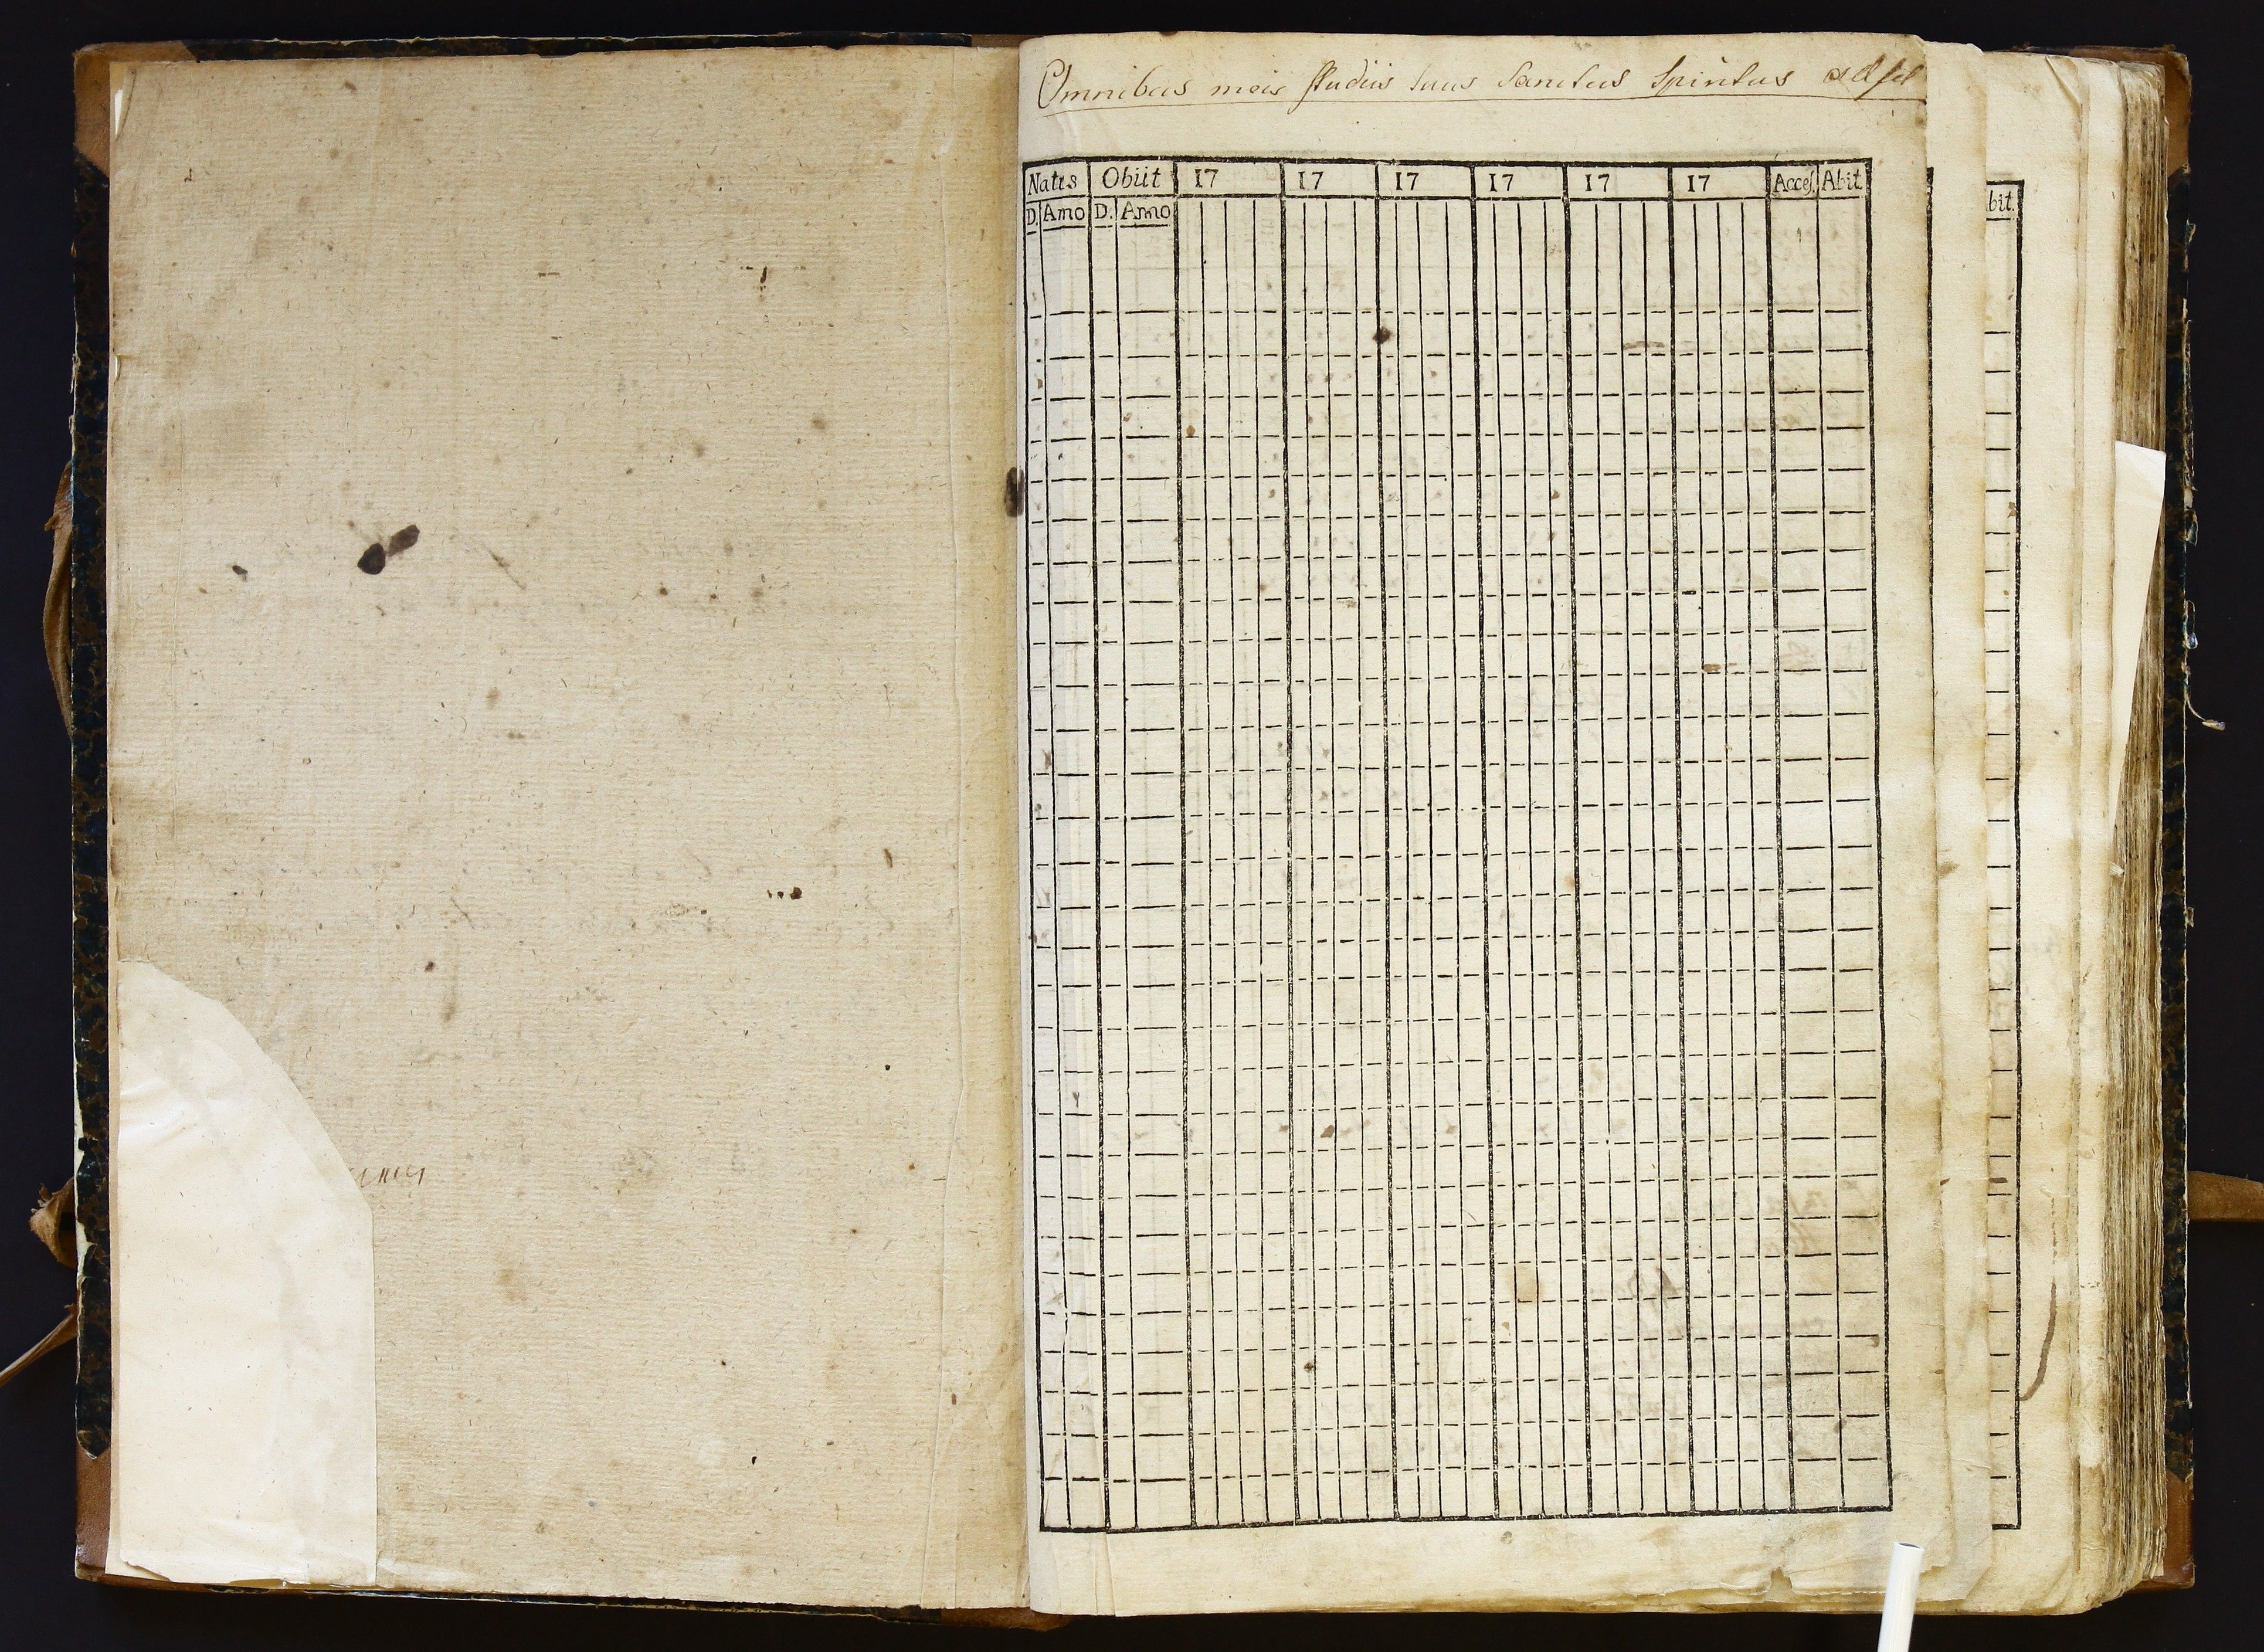 Omnibus meis studiis tuus Sanctus Spiritus adsit
Natus Obiit 17 17 17 17 17 17 Acces. Abit.
D. Anno D. Anno
bit.